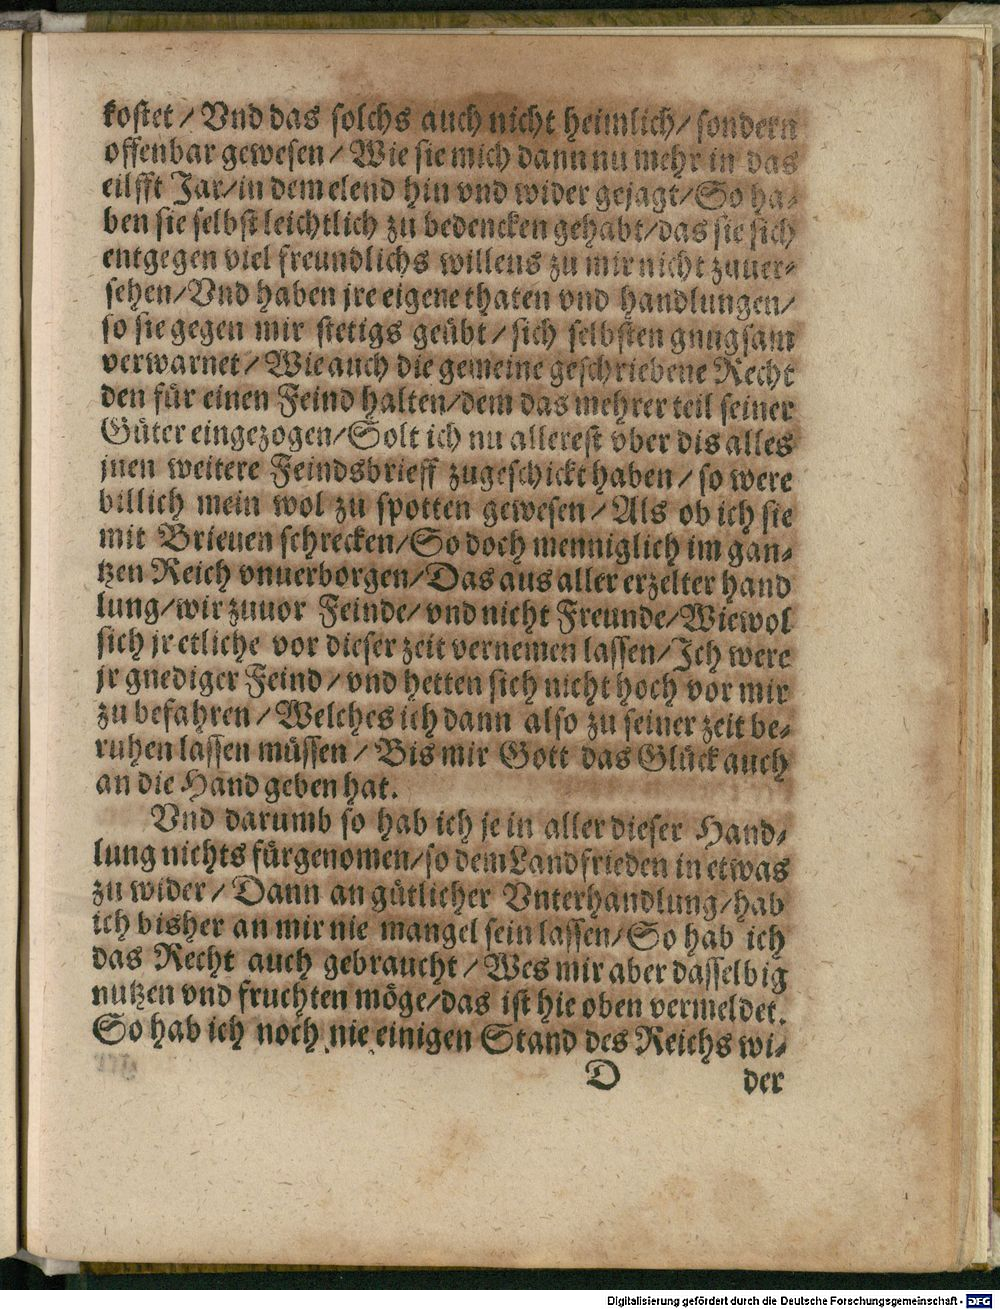 kostet / Vnd das solchs auch nicht heimlich / sondern
offenbar gewesen / Wie sie mich dann nu mehr in das
eilfft Jar / in dem elend hin vnd wider gejagt / So ha-
ben sie selbst leichtlich zu bedencken gehabt / das sie sich
entgegen viel freundlichs willens zu mir nicht zuuer-
sehen / Vnd haben jre eigene thaten vnd handlungen /
so sie gegen mir stetigs geübt / sich selbsten gnugsam
verwarnet / Wie auch die gemeine geschriebene Recht
den für einen Feind halten / dem das mehrer teil seiner
Güter eingezogen / Solt ich nu allererst vber dis alles
jnen weitere Feindsbrieff zugeschickt haben / so were
billich mein wol zu spotten gewesen / Als ob ich sie
mit Brieuen schrecken / So doch menniglich im gan-
tzen Reich vnuerborgen / Das aus aller erzelter hand
lung / wir zuuor Feinde / vnd nicht Freunde / Wiewol
sich jr etliche vor dieser zeit vernemen lassen / Ich were
jr gnediger Feind / vnd hetten sich nicht hoch vor mir
zu befahren / Welches ich dann also zu seiner zeit be-
ruhen lassen müssen / Bis mir Gott das Glück auch
an die Hand geben hat.
Vnd darumb so hab ich je in aller dieser Hand-
lung nichts fürgenomen / so dem Landfrieden in etwas
zu wider / Dann an gütlicher Vnterhandlung / hab
ich bisher an mir nie mangel sein lassen / So hab ich
das Recht auch gebraucht / Wes mir aber dasselbig
nutzen vnd fruchten möge / das ist hie oben vermeldet.
So hab ich noch nie einigen Stand des Reichs wi-
D der
Digitalisierung gefördert durch die Deutsche Forschungsgemeinschaft - DFG